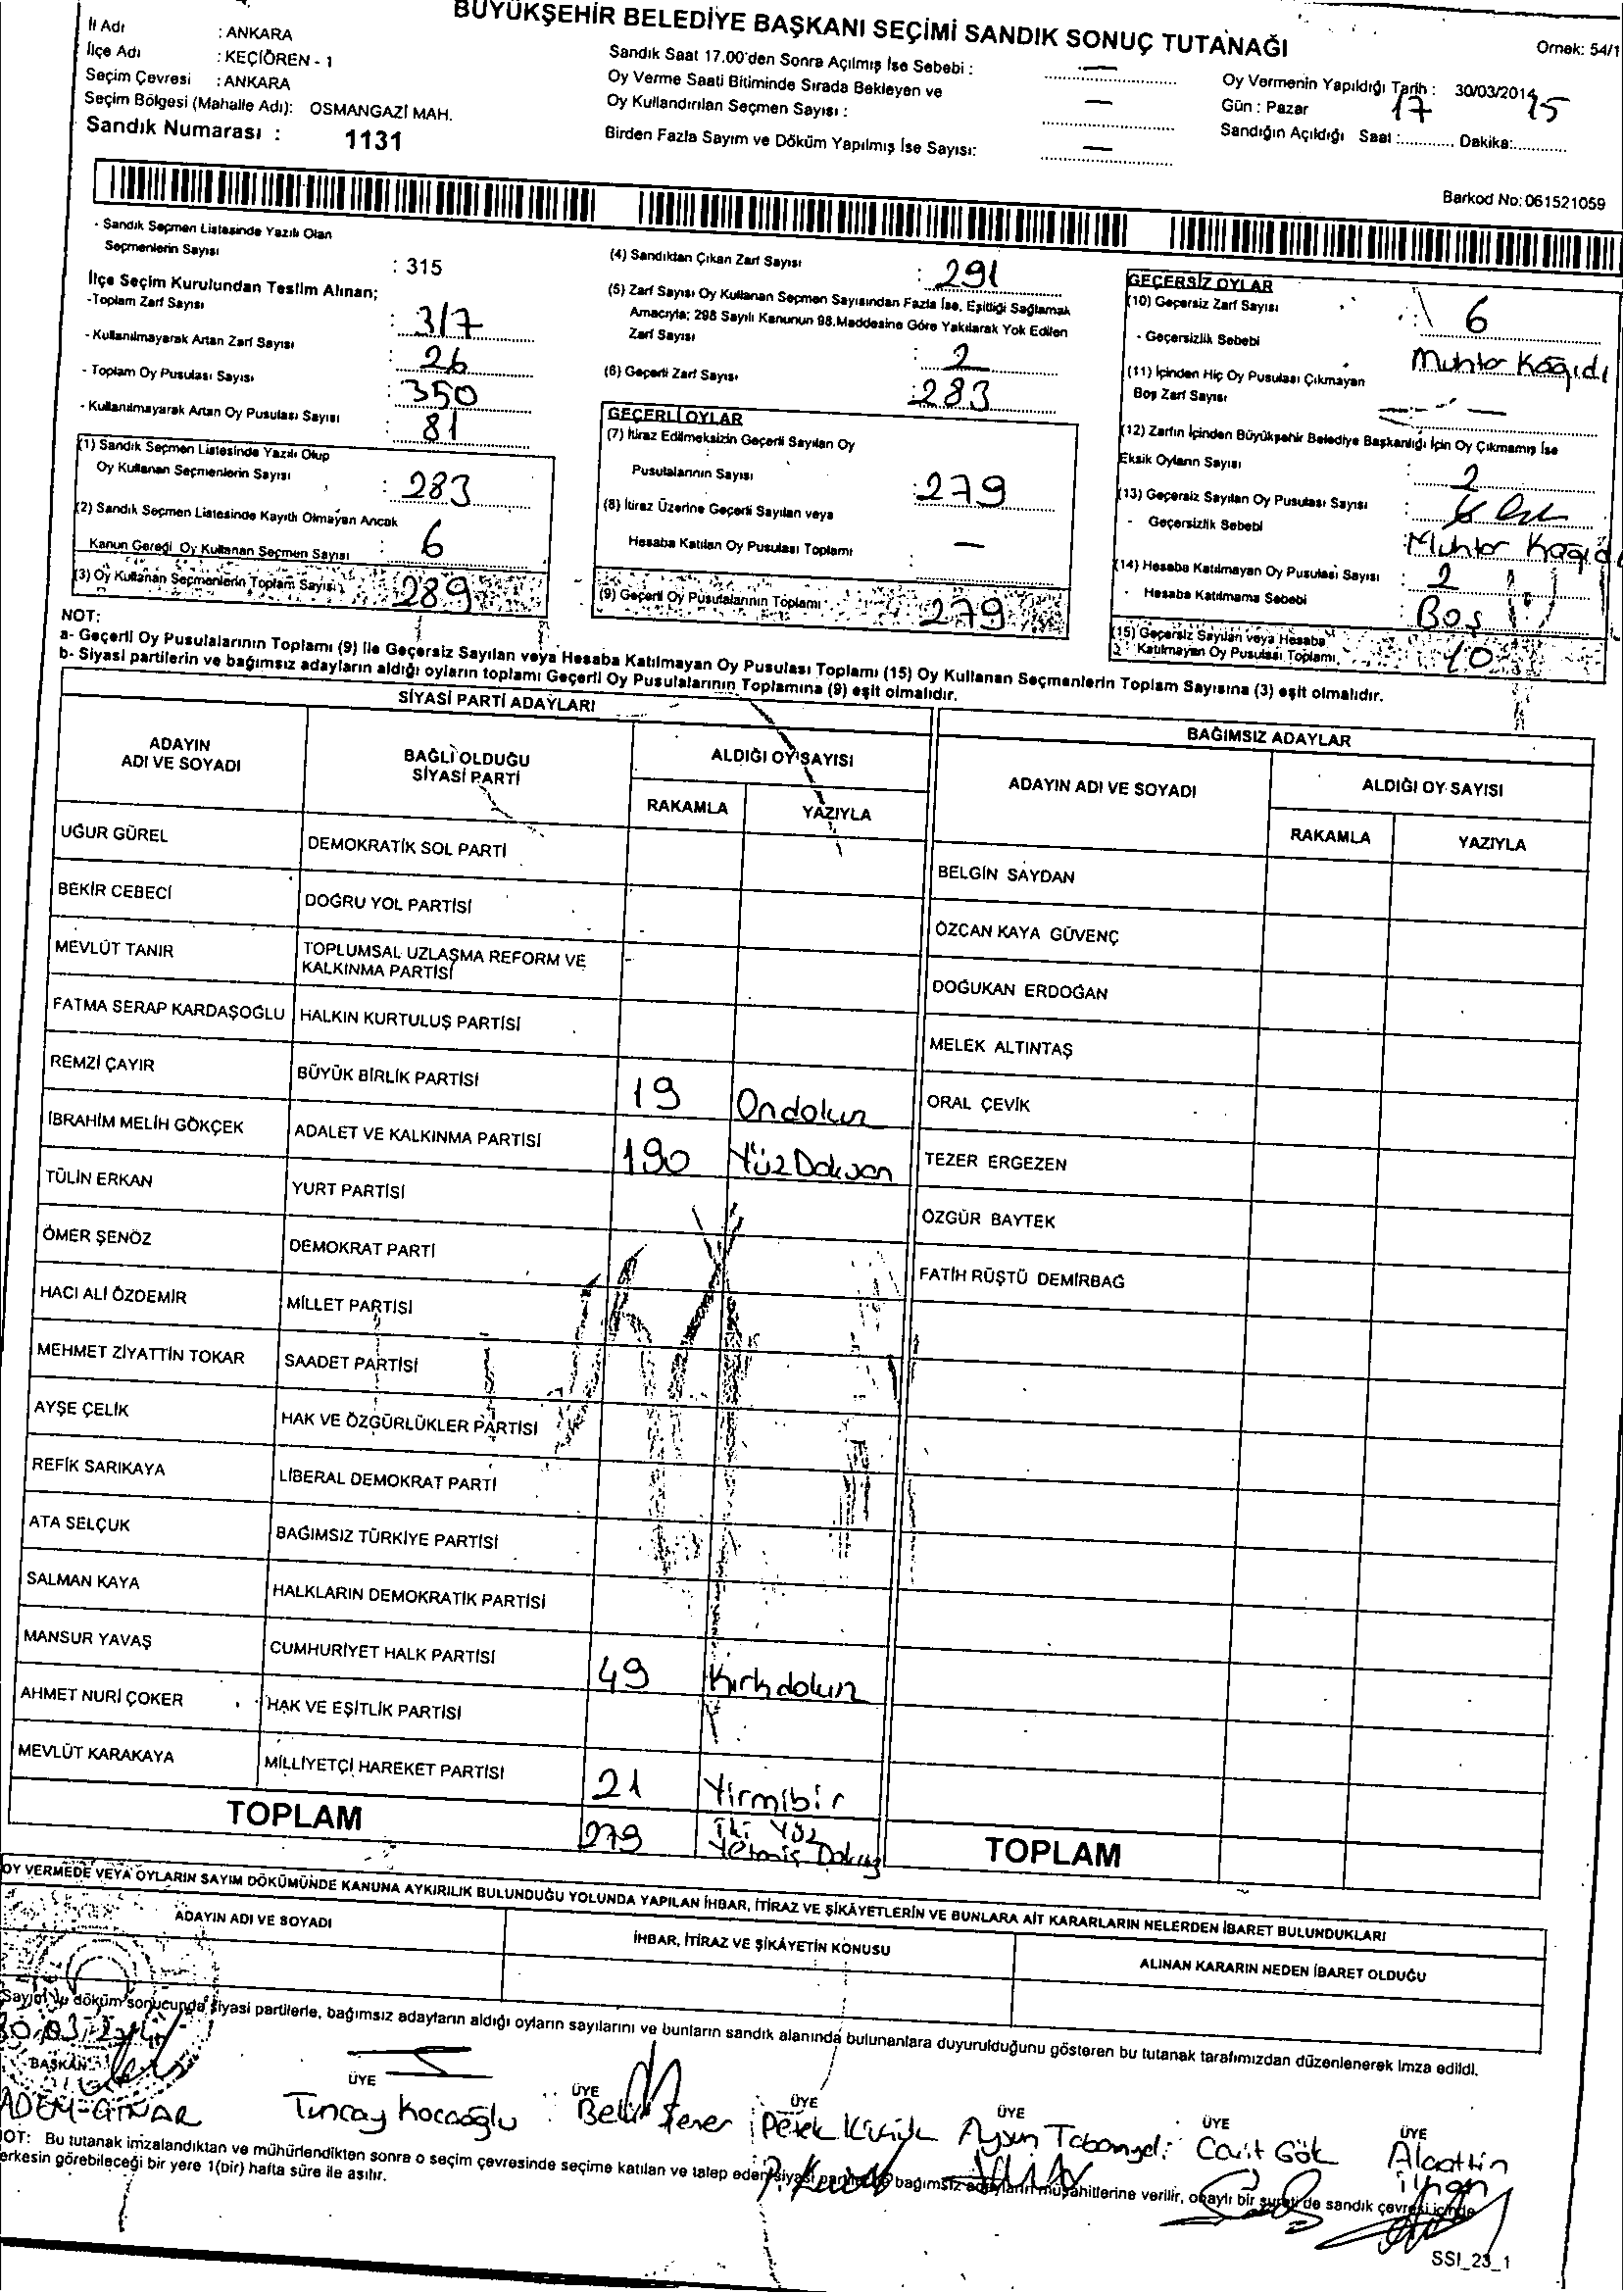 BÜYÜKŞEHİR BELEDİYE BAŞKANI SEÇİMİ SANDIK SONUÇ TUTANAĞI
Örnek: 54/1
İl Adı : ANKARA
İlçe Adı : KEÇİÖREN - 1
Seçim Çevresi : ANKARA
Seçim Bölgesi (Mahalle Adı): OSMANGAZİ MAH.
Sandık Numarası : 1131
Sandık Saat 17.00'den Sonra Açılmış İse Sebebi : —
Oy Verme Saati Bitiminde Sırada Bekleyen ve
Oy Kullandırılan Seçmen Sayısı : —
Birden Fazla Sayım ve Döküm Yapılmış İse Sayısı: —
Oy Vermenin Yapıldığı Tarih : 30/03/2014
Gün : Pazar
Sandığın Açıldığı Saat : 17 Dakika: 15
Barkod No: 061521059
- Sandık Seçmen Listesinde Yazılı Olan
Seçmenlerin Sayısı : 315
İlçe Seçim Kurulundan Teslim Alınan;
-Toplam Zarf Sayısı : 317
- Kullanılmayarak Artan Zarf Sayısı : 26
- Toplam Oy Pusulası Sayısı : 350
- Kullanılmayarak Artan Oy Pusulası Sayısı : 81
(1) Sandık Seçmen Listesinde Yazılı Olup
Oy Kullanan Seçmenlerin Sayısı : 283
(2) Sandık Seçmen Listesinde Kayıtlı Olmayan Ancak
Kanun Gereği Oy Kullanan Seçmen Sayısı : 6
(3) Oy Kullanan Seçmenlerin Toplam Sayısı : 289
(4) Sandıktan Çıkan Zarf Sayısı : 291
(5) Zarf Sayısı Oy Kullanan Seçmen Sayısından Fazla İse, Eşitliği Sağlamak
Amacıyla; 298 Sayılı Kanunun 98.Maddesine Göre Yakılarak Yok Edilen
Zarf Sayısı : 2
(6) Geçerli Zarf Sayısı : 283
GEÇERLİ OYLAR
(7) İtiraz Edilmeksizin Geçerli Sayılan Oy
Pusulalarının Sayısı : 279
(8) İtiraz Üzerine Geçerli Sayılan veya
Hesaba Katılan Oy Pusulası Toplamı : —
(9) Geçerli Oy Pusulalarının Toplamı : 279
GEÇERSİZ OYLAR
(10) Geçersiz Zarf Sayısı : 6
- Geçersizlik Sebebi Muhtar Kağıdı
(11) İçinden Hiç Oy Pusulası Çıkmayan
Boş Zarf Sayısı —
(12) Zarfın İçinden Büyükşehir Belediye Başkanlığı İçin Oy Çıkmamış İse
Eksik Oyların Sayısı : 2
(13) Geçersiz Sayılan Oy Pusulası Sayısı :
- Geçersizlik Sebebi : Muhtar Kağıdı
(14) Hesaba Katılmayan Oy Pusulası Sayısı : 2
- Hesaba Katılmama Sebebi : Boş
(15) Geçersiz Sayılan veya Hesaba
Katılmayan Oy Pusulası Toplamı : 10
NOT:
a- Geçerli Oy Pusulalarının Toplamı (9) ile Geçersiz Sayılan veya Hesaba Katılmayan Oy Pusulası Toplamı (15) Oy Kullanan Seçmenlerin Toplam Sayısına (3) eşit olmalıdır.
b- Siyasi partilerin ve bağımsız adayların aldığı oyların toplamı Geçerli Oy Pusulalarının Toplamına (9) eşit olmalıdır.
SİYASİ PARTİ ADAYLARI
ADAYIN ADI VE SOYADI BAĞLI OLDUĞU SİYASİ PARTİ ALDIĞI OY SAYISI
RAKAMLA YAZIYLA
UĞUR GÜREL DEMOKRATİK SOL PARTİ
BEKİR CEBECİ DOĞRU YOL PARTİSİ
MEVLÜT TANIR TOPLUMSAL UZLAŞMA REFORM VE KALKINMA PARTİSİ
FATMA SERAP KARDAŞOĞLU HALKIN KURTULUŞ PARTİSİ
REMZİ ÇAYIR BÜYÜK BİRLİK PARTİSİ 19 Ondokuz
İBRAHİM MELİH GÖKÇEK ADALET VE KALKINMA PARTİSİ 190 YüzDoksan
TÜLİN ERKAN YURT PARTİSİ
ÖMER ŞENÖZ DEMOKRAT PARTİ
HACI ALİ ÖZDEMİR MİLLET PARTİSİ
MEHMET ZİYATTİN TOKAR SAADET PARTİSİ
AYŞE ÇELİK HAK VE ÖZGÜRLÜKLER PARTİSİ
REFİK SARIKAYA LİBERAL DEMOKRAT PARTİ
ATA SELÇUK BAĞIMSIZ TÜRKİYE PARTİSİ
SALMAN KAYA HALKLARIN DEMOKRATİK PARTİSİ
MANSUR YAVAŞ CUMHURİYET HALK PARTİSİ 49 Kırkdokuz
AHMET NURİ ÇOKER HAK VE EŞİTLİK PARTİSİ
MEVLÜT KARAKAYA MİLLİYETÇİ HAREKET PARTİSİ 21 Yirmibir
TOPLAM 279 İki Yüz Yetmiş Dokuz
BAĞIMSIZ ADAYLAR
ADAYIN ADI VE SOYADI ALDIĞI OY SAYISI
RAKAMLA YAZIYLA
BELGİN SAYDAN
ÖZCAN KAYA GÜVENÇ
DOĞUKAN ERDOĞAN
MELEK ALTINTAŞ
ORAL ÇEVİK
TEZER ERGEZEN
ÖZGÜR BAYTEK
FATİH RÜŞTÜ DEMİRBAĞ
TOPLAM
OY VERMEDE VEYA OYLARIN SAYIM DÖKÜMÜNDE KANUNA AYKIRILIK BULUNDUĞU YOLUNDA YAPILAN İHBAR, İTİRAZ VE ŞİKÂYETLERİN VE BUNLARA AİT KARARLARIN NELERDEN İBARET BULUNDUKLARI
ADAYIN ADI VE SOYADI İHBAR, İTİRAZ VE ŞİKÂYETİN KONUSU ALINAN KARARIN NEDEN İBARET OLDUĞU
Sayım ve döküm sonucunda siyasi partilerle, bağımsız adayların aldığı oyların sayılarını ve bunların sandık alanında bulunanlara duyurulduğunu gösteren bu tutanak tarafımızdan düzenlenerek imza edildi.
30.03.2014
BAŞKAN ÜYE ÜYE ÜYE ÜYE ÜYE ÜYE
ADEM ÇINAR Tuncay Kocaoğlu Şener Aysun Cavit Gök Alaattin İlhan
NOT: Bu tutanak imzalandıktan ve mühürlendikten sonra o seçim çevresinde seçime katılan ve talep eden siyasi partiler bağımsız adayların müşahitlerine verilir, onaylı bir sureti de sandık çevresi içinde
herkesin görebileceği bir yere 1(bir) hafta süre ile asılır.
SSI_23_1